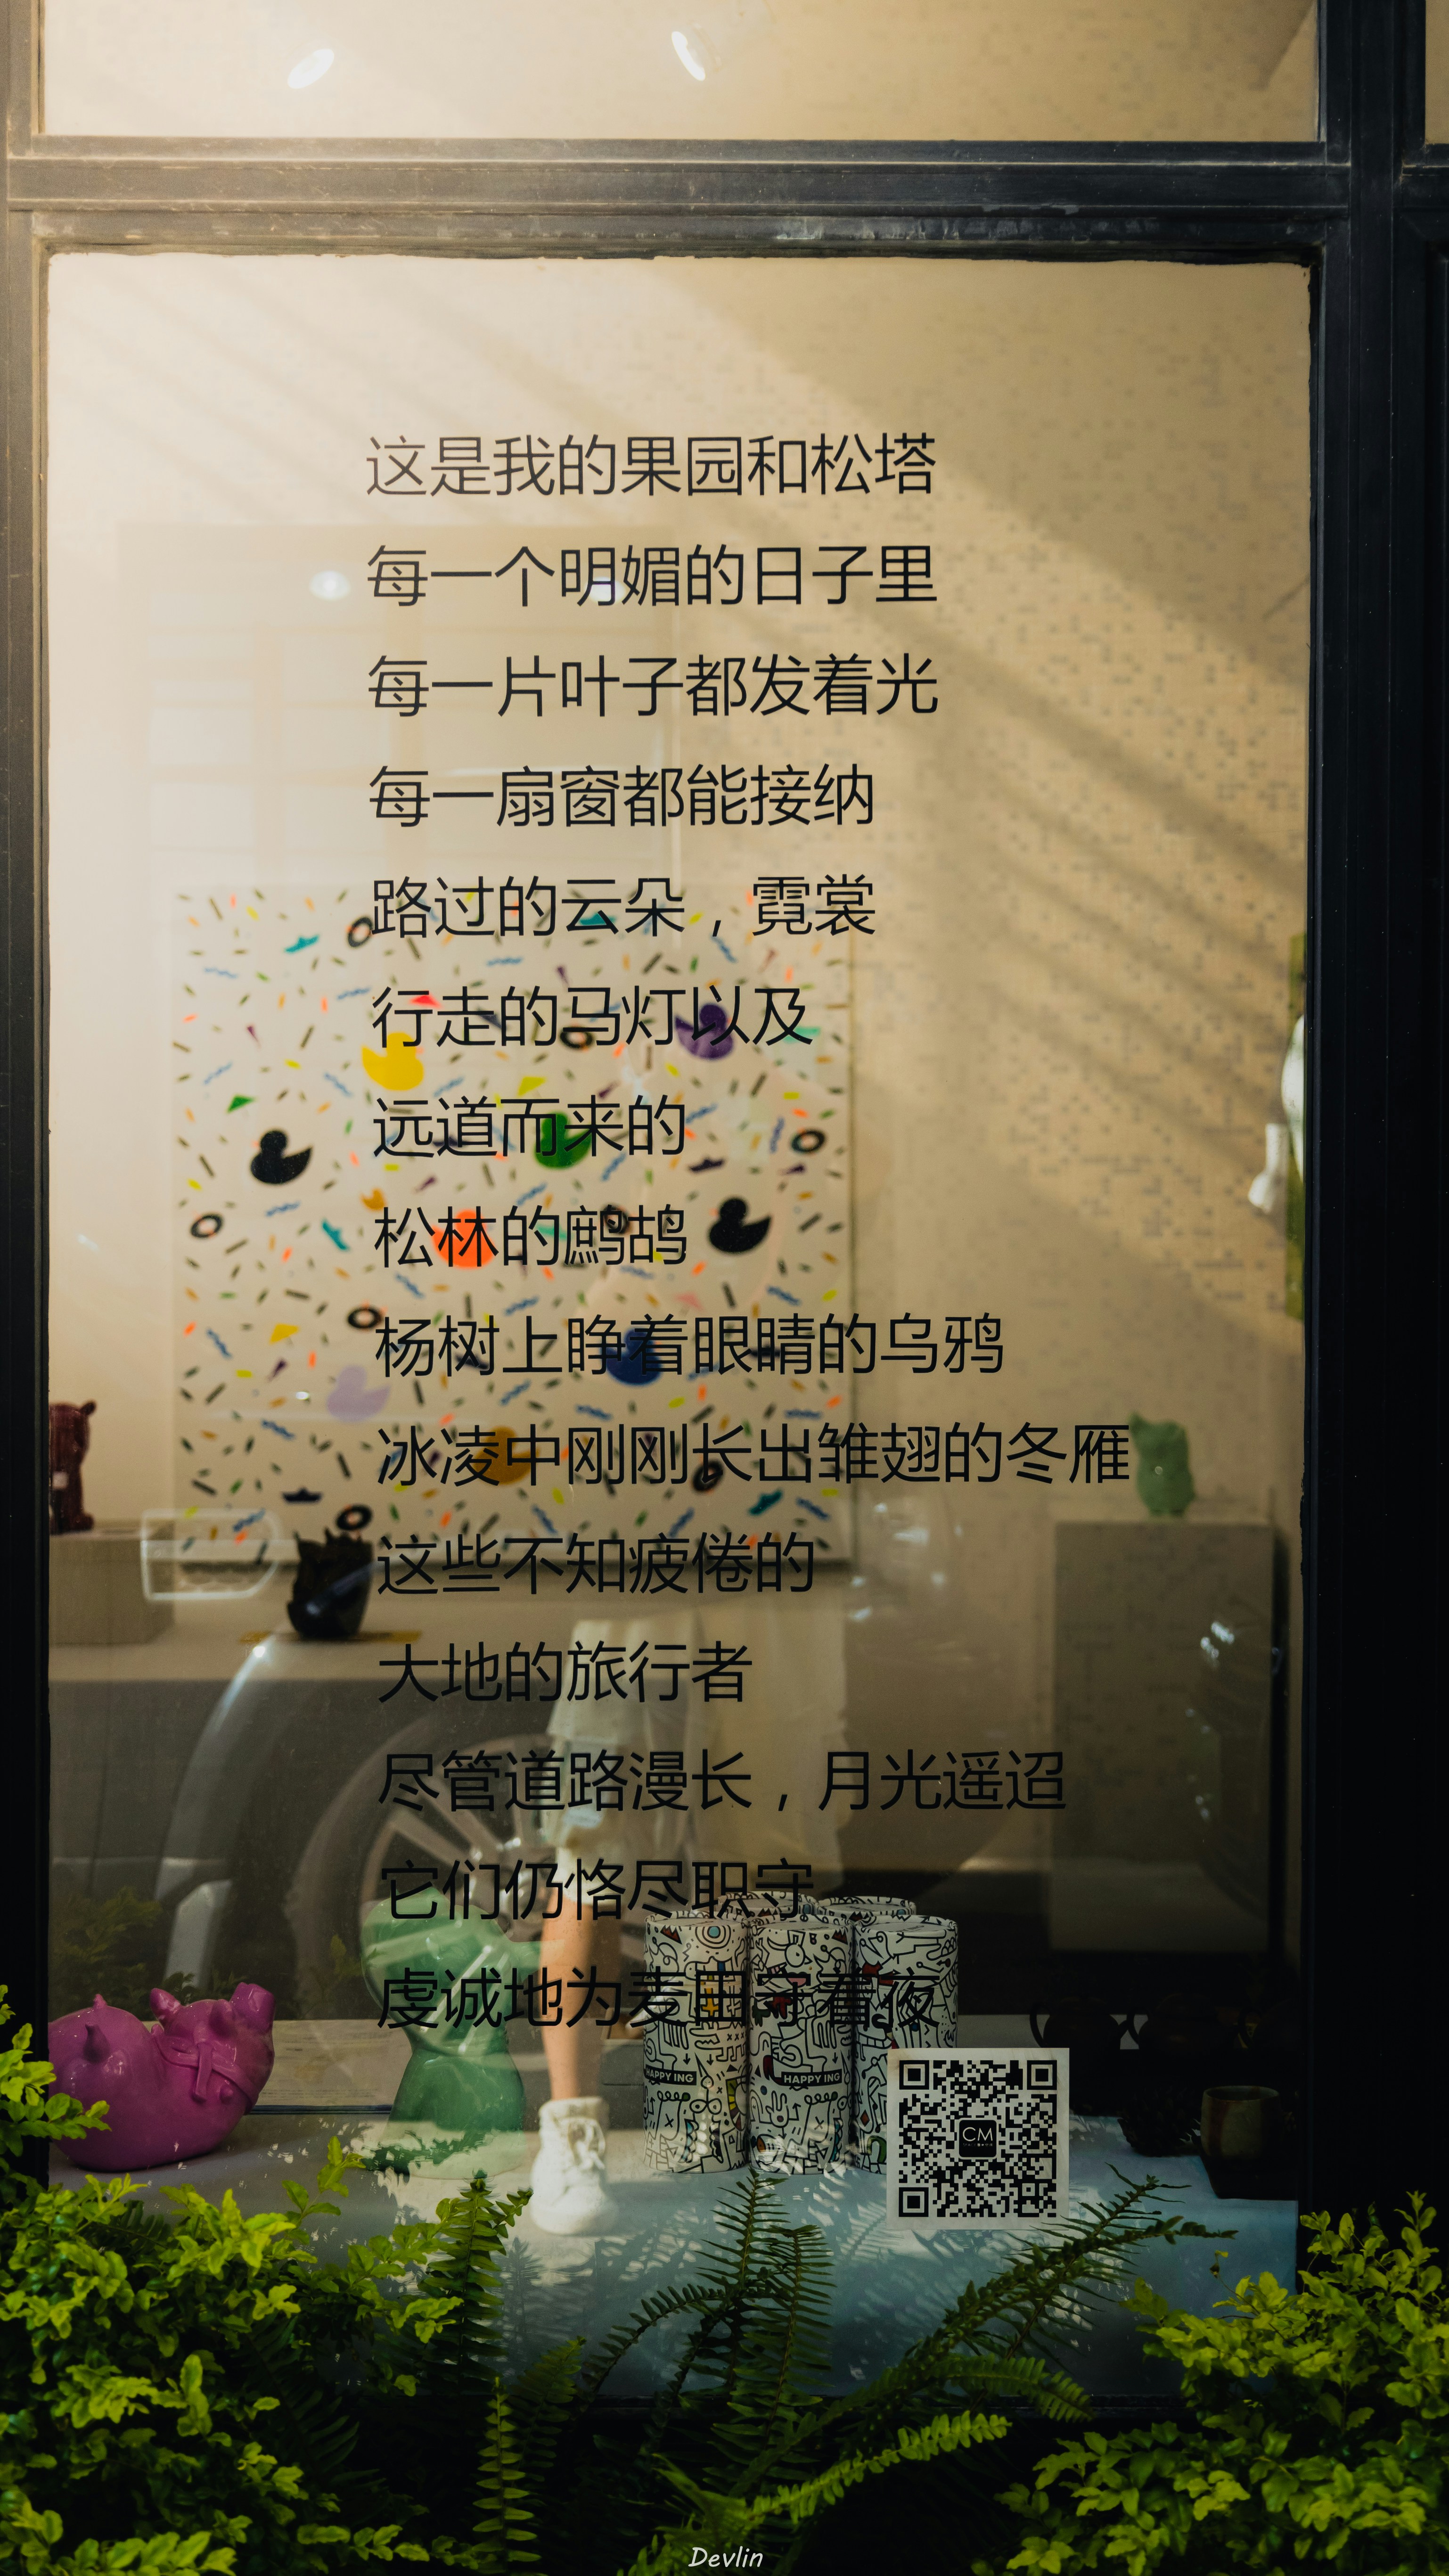 这是我的果园和松塔
每一个明媚的日子里
每一片叶子都发着光
每一扇窗都能接纳
路过的云朵，霓裳
行走的马灯以及
远道而来的
松林的鹧鸪
杨树上睁着眼睛的乌鸦
冰凌中刚刚长出雏翅的冬雁
这些不知疲倦的
大地的旅行者
尽管道路漫长，月光遥迢
它们仍恪尽职守
虔诚地为麦田守着夜
HAPPY ING
HAPPY ING
CM
Devlin